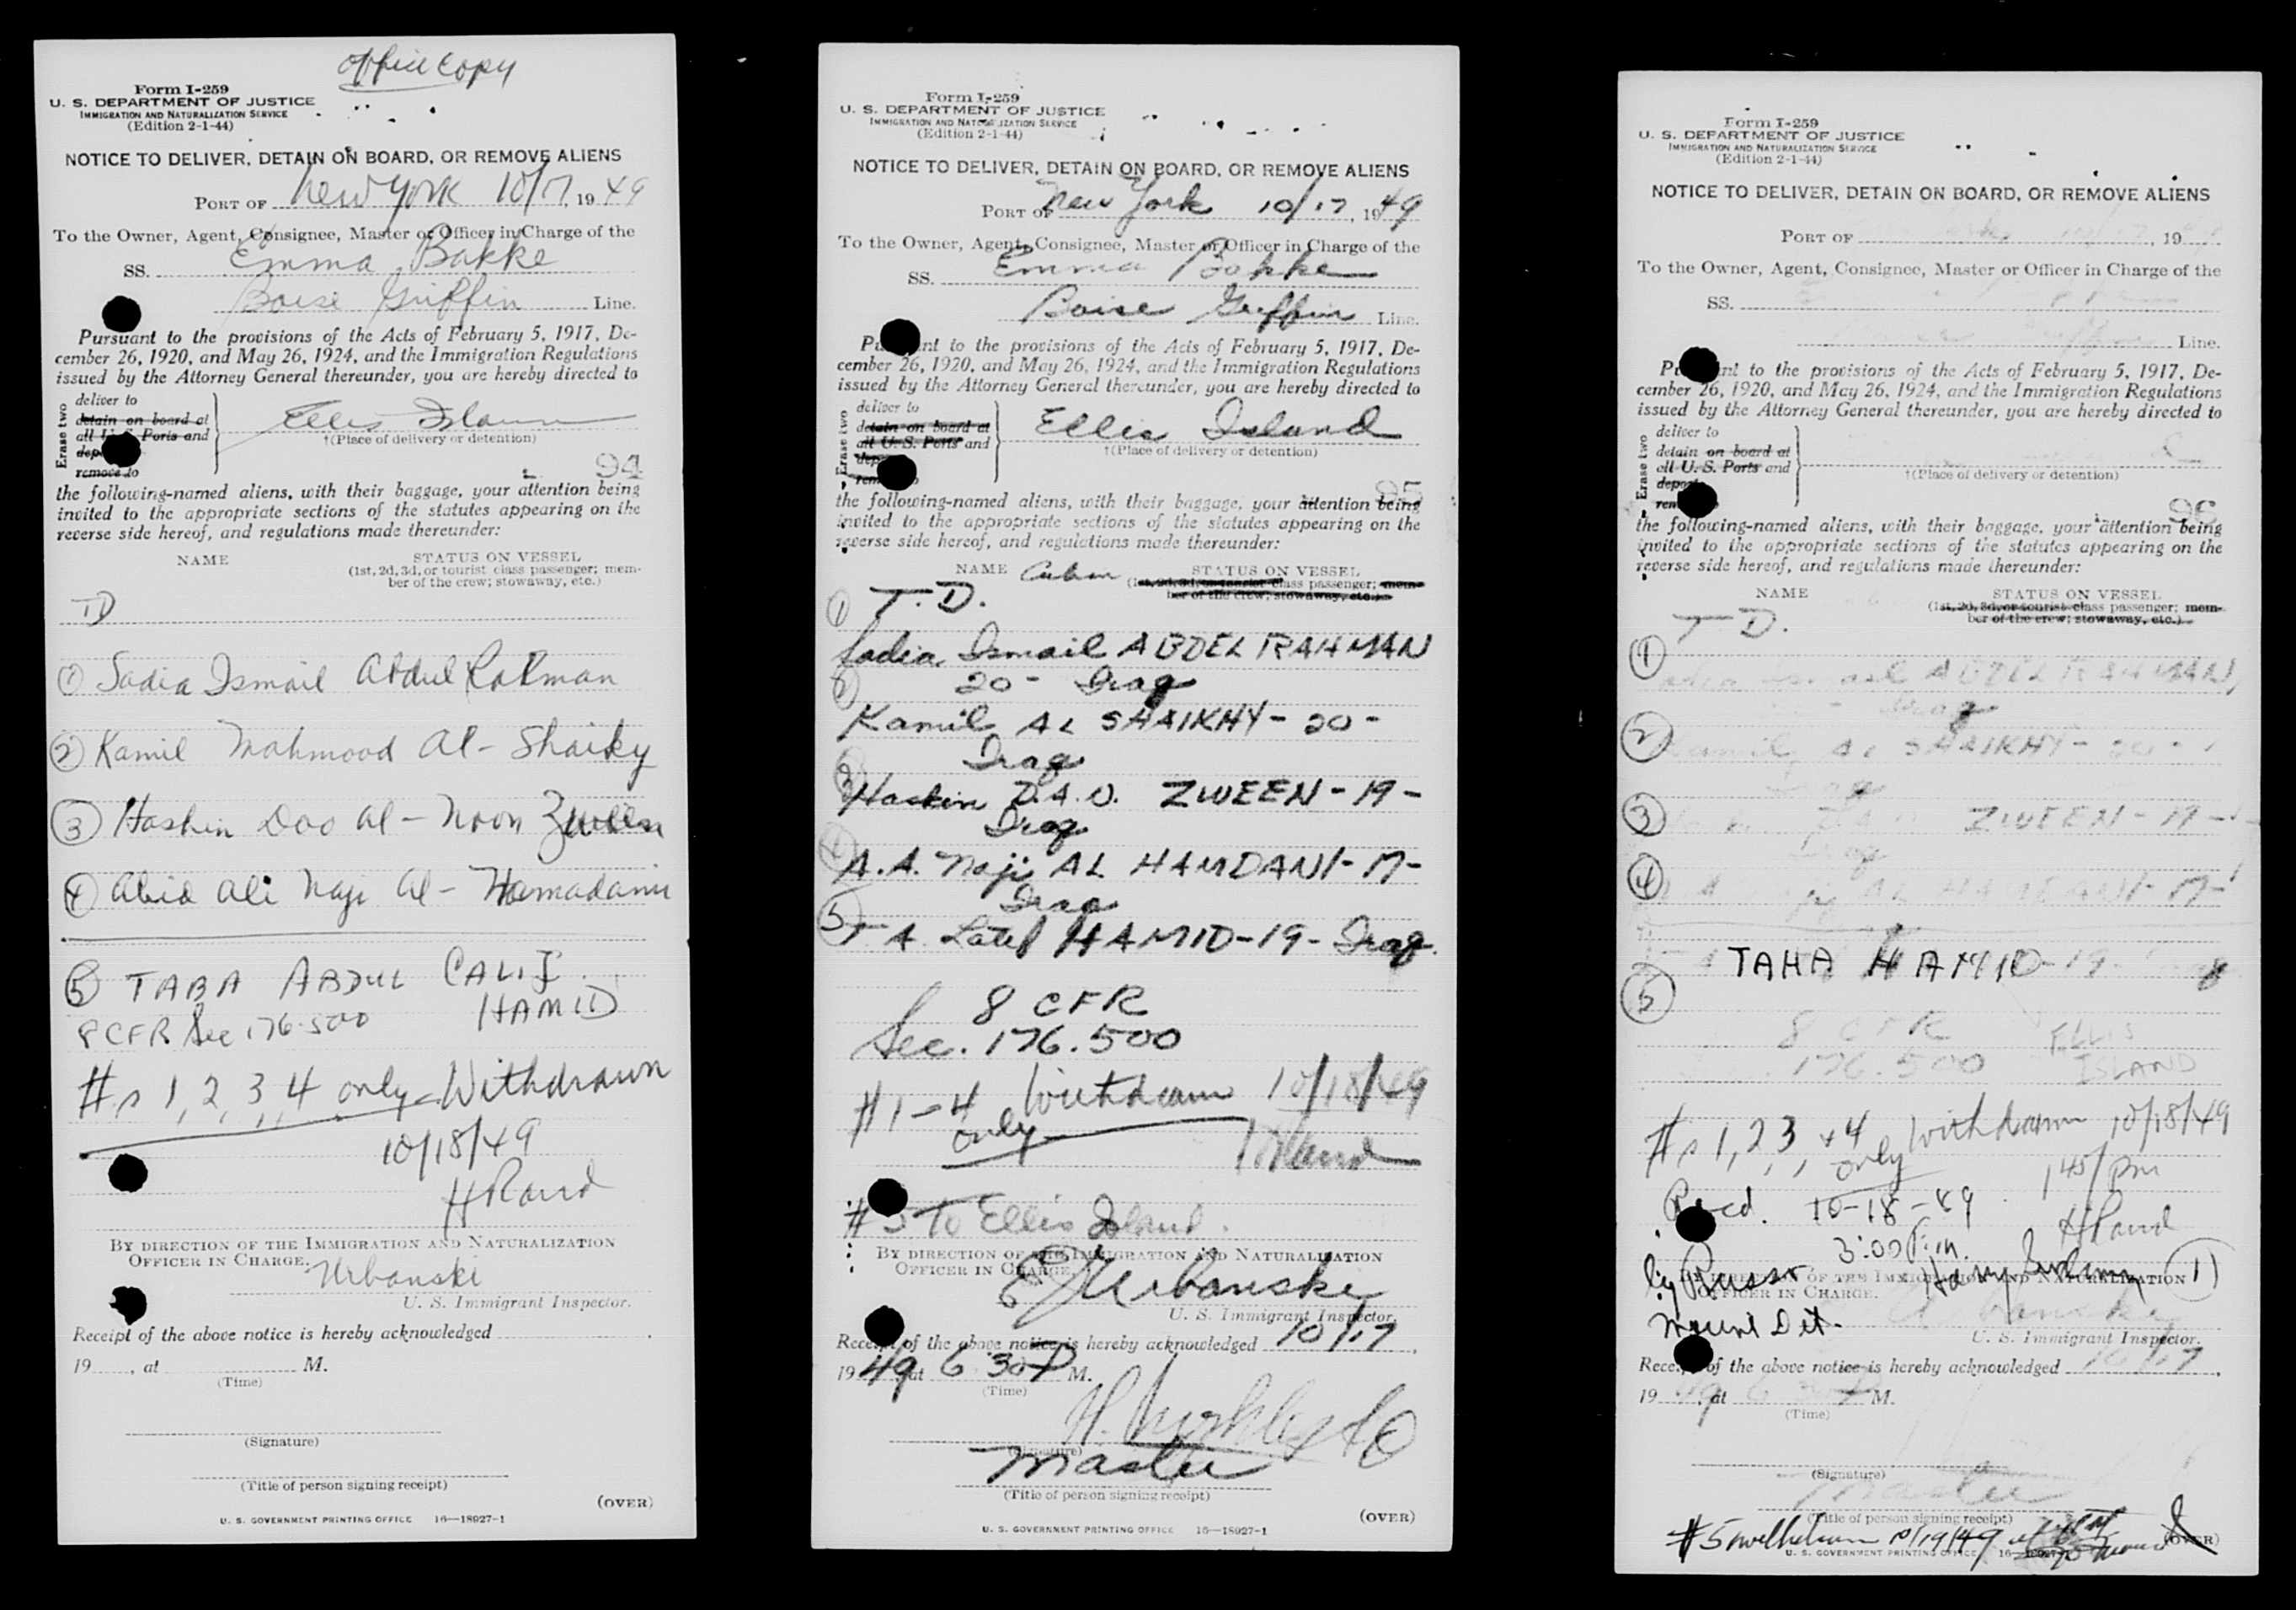 office copy
Form I-259
U. S. DEPARTMENT OF JUSTICE
IMMIGRATION AND NATURALIZATION SERVICE
(Edition 2-1-44)
NOTICE TO DELIVER, DETAIN ON BOARD, OR REMOVE ALIENS
PORT OF New York 10/17, 1949
To the Owner, Agent, Consignee, Master or Officer in Charge of the
SS. Emma Bakke
Boise Griffin Line.
Pursuant to the provisions of the Acts of February 5, 1917, De-
cember 26, 1920, and May 26, 1924, and the Immigration Regulations
issued by the Attorney General thereunder, you are hereby directed to
Erase two
deliver to
detain on board at
all U. S. Ports and
remove to
Ellis Island
†(Place of delivery or detention)
94
the following-named aliens, with their baggage, your attention being
invited to the appropriate sections of the statutes appearing on the
reverse side hereof, and regulations made thereunder:
NAME STATUS ON VESSEL
(1st, 2d, 3d, or tourist class passenger; mem-
ber of the crew; stowaway, etc.)
TD
1 Sadia Ismail Abdul Rahman
2 Kamil Mahmood Al-Shaiky
3 Hashin Doo Al-Noon Zween
4 Abid Ali Naji Al-Hamadani
5 TABA ABDUL CALIF
HAMID
8 CFR Sec 176.500
#s 1, 2, 3, 4 only Withdrawn
10/18/49
H Rand
BY DIRECTION OF THE IMMIGRATION AND NATURALIZATION
OFFICER IN CHARGE.
Urbanski
U. S. Immigrant Inspector.
Receipt of the above notice is hereby acknowledged
19, at M.
(Time)
(Signature)
(Title of person signing receipt)
(OVER)
U. S. GOVERNMENT PRINTING OFFICE 16—18927-1
Form I-259
U. S. DEPARTMENT OF JUSTICE
IMMIGRATION AND NATURALIZATION SERVICE
(Edition 2-1-44)
NOTICE TO DELIVER, DETAIN ON BOARD, OR REMOVE ALIENS
PORT OF New York 10/17, 1949
To the Owner, Agent, Consignee, Master or Officer in Charge of the
SS. Emma Bakke
Boise Griffin Line.
Pursuant to the provisions of the Acts of February 5, 1917, De-
cember 26, 1920, and May 26, 1924, and the Immigration Regulations
issued by the Attorney General thereunder, you are hereby directed to
Erase two
deliver to
detain on board at
all U. S. Ports and
Ellis Island
†(Place of delivery or detention)
95
the following-named aliens, with their baggage, your attention being
invited to the appropriate sections of the statutes appearing on the
reverse side hereof, and regulations made thereunder:
NAME STATUS ON VESSEL
(1st, 2d, 3d, or tourist class passenger; mem-
ber of the crew; stowaway, etc.)
1 T.D.
Sadia Ismail ABDEL RAHMAN
2 20 - Iraq
Kamil AL SHAIKHY - 20 -
Iraq
3 Hashin D.A.N. ZWEEN - 19 -
Iraq
4 A.A. Naji AL HAMDANI - 17 -
Iraq
5 T A Latif HAMID - 19 - Iraq
8 CFR
Sec. 176.500
#1-4 only Withdrawn 10/18/49
H Rand
#5 To Ellis Island.
BY DIRECTION OF THE IMMIGRATION AND NATURALIZATION
OFFICER IN CHARGE.
E Urbanski
U. S. Immigrant Inspector.
Receipt of the above notice is hereby acknowledged 10/17,
1949, at 6 30 P M.
(Time)
(Signature)
Master
(Title of person signing receipt)
(OVER)
U. S. GOVERNMENT PRINTING OFFICE 16—18927-1
Form I-259
U. S. DEPARTMENT OF JUSTICE
IMMIGRATION AND NATURALIZATION SERVICE
(Edition 2-1-44)
NOTICE TO DELIVER, DETAIN ON BOARD, OR REMOVE ALIENS
PORT OF , 19
To the Owner, Agent, Consignee, Master or Officer in Charge of the
SS.
Line.
Pursuant to the provisions of the Acts of February 5, 1917, De-
cember 26, 1920, and May 26, 1924, and the Immigration Regulations
issued by the Attorney General thereunder, you are hereby directed to
Erase two
deliver to
detain on board at
all U. S. Ports and
†(Place of delivery or detention)
96
the following-named aliens, with their baggage, your attention being
invited to the appropriate sections of the statutes appearing on the
reverse side hereof, and regulations made thereunder:
NAME STATUS ON VESSEL
(1st, 2d, 3d, or tourist class passenger; mem-
ber of the crew; stowaway, etc.)
T D.
1 ABDEL RAHMAN
Iraq
2 Kamil AL SHAIKHY - 20 -
3 ZWEEN - 19 -
4 AL HAMDANI - 17 -
5 TAHA HAMID - 19 -
8 CFR
176.500
ELLIS
ISLAND
#s 1, 2, 3, + 4 only Withdrawn 10/18/49
1 45/ pm
H Rand
Recd. 10-18-49
3:00 P.m.
by Russo
1
BY DIRECTION OF THE IMMIGRATION AND NATURALIZATION
OFFICER IN CHARGE.
Det.
U. S. Immigrant Inspector.
Receipt of the above notice is hereby acknowledged 10/17,
1949, at 6 30 P M.
(Time)
(Signature)
Master
(Title of person signing receipt)
#5 withdrawn 10/19/49 at
(OVER)
U. S. GOVERNMENT PRINTING OFFICE